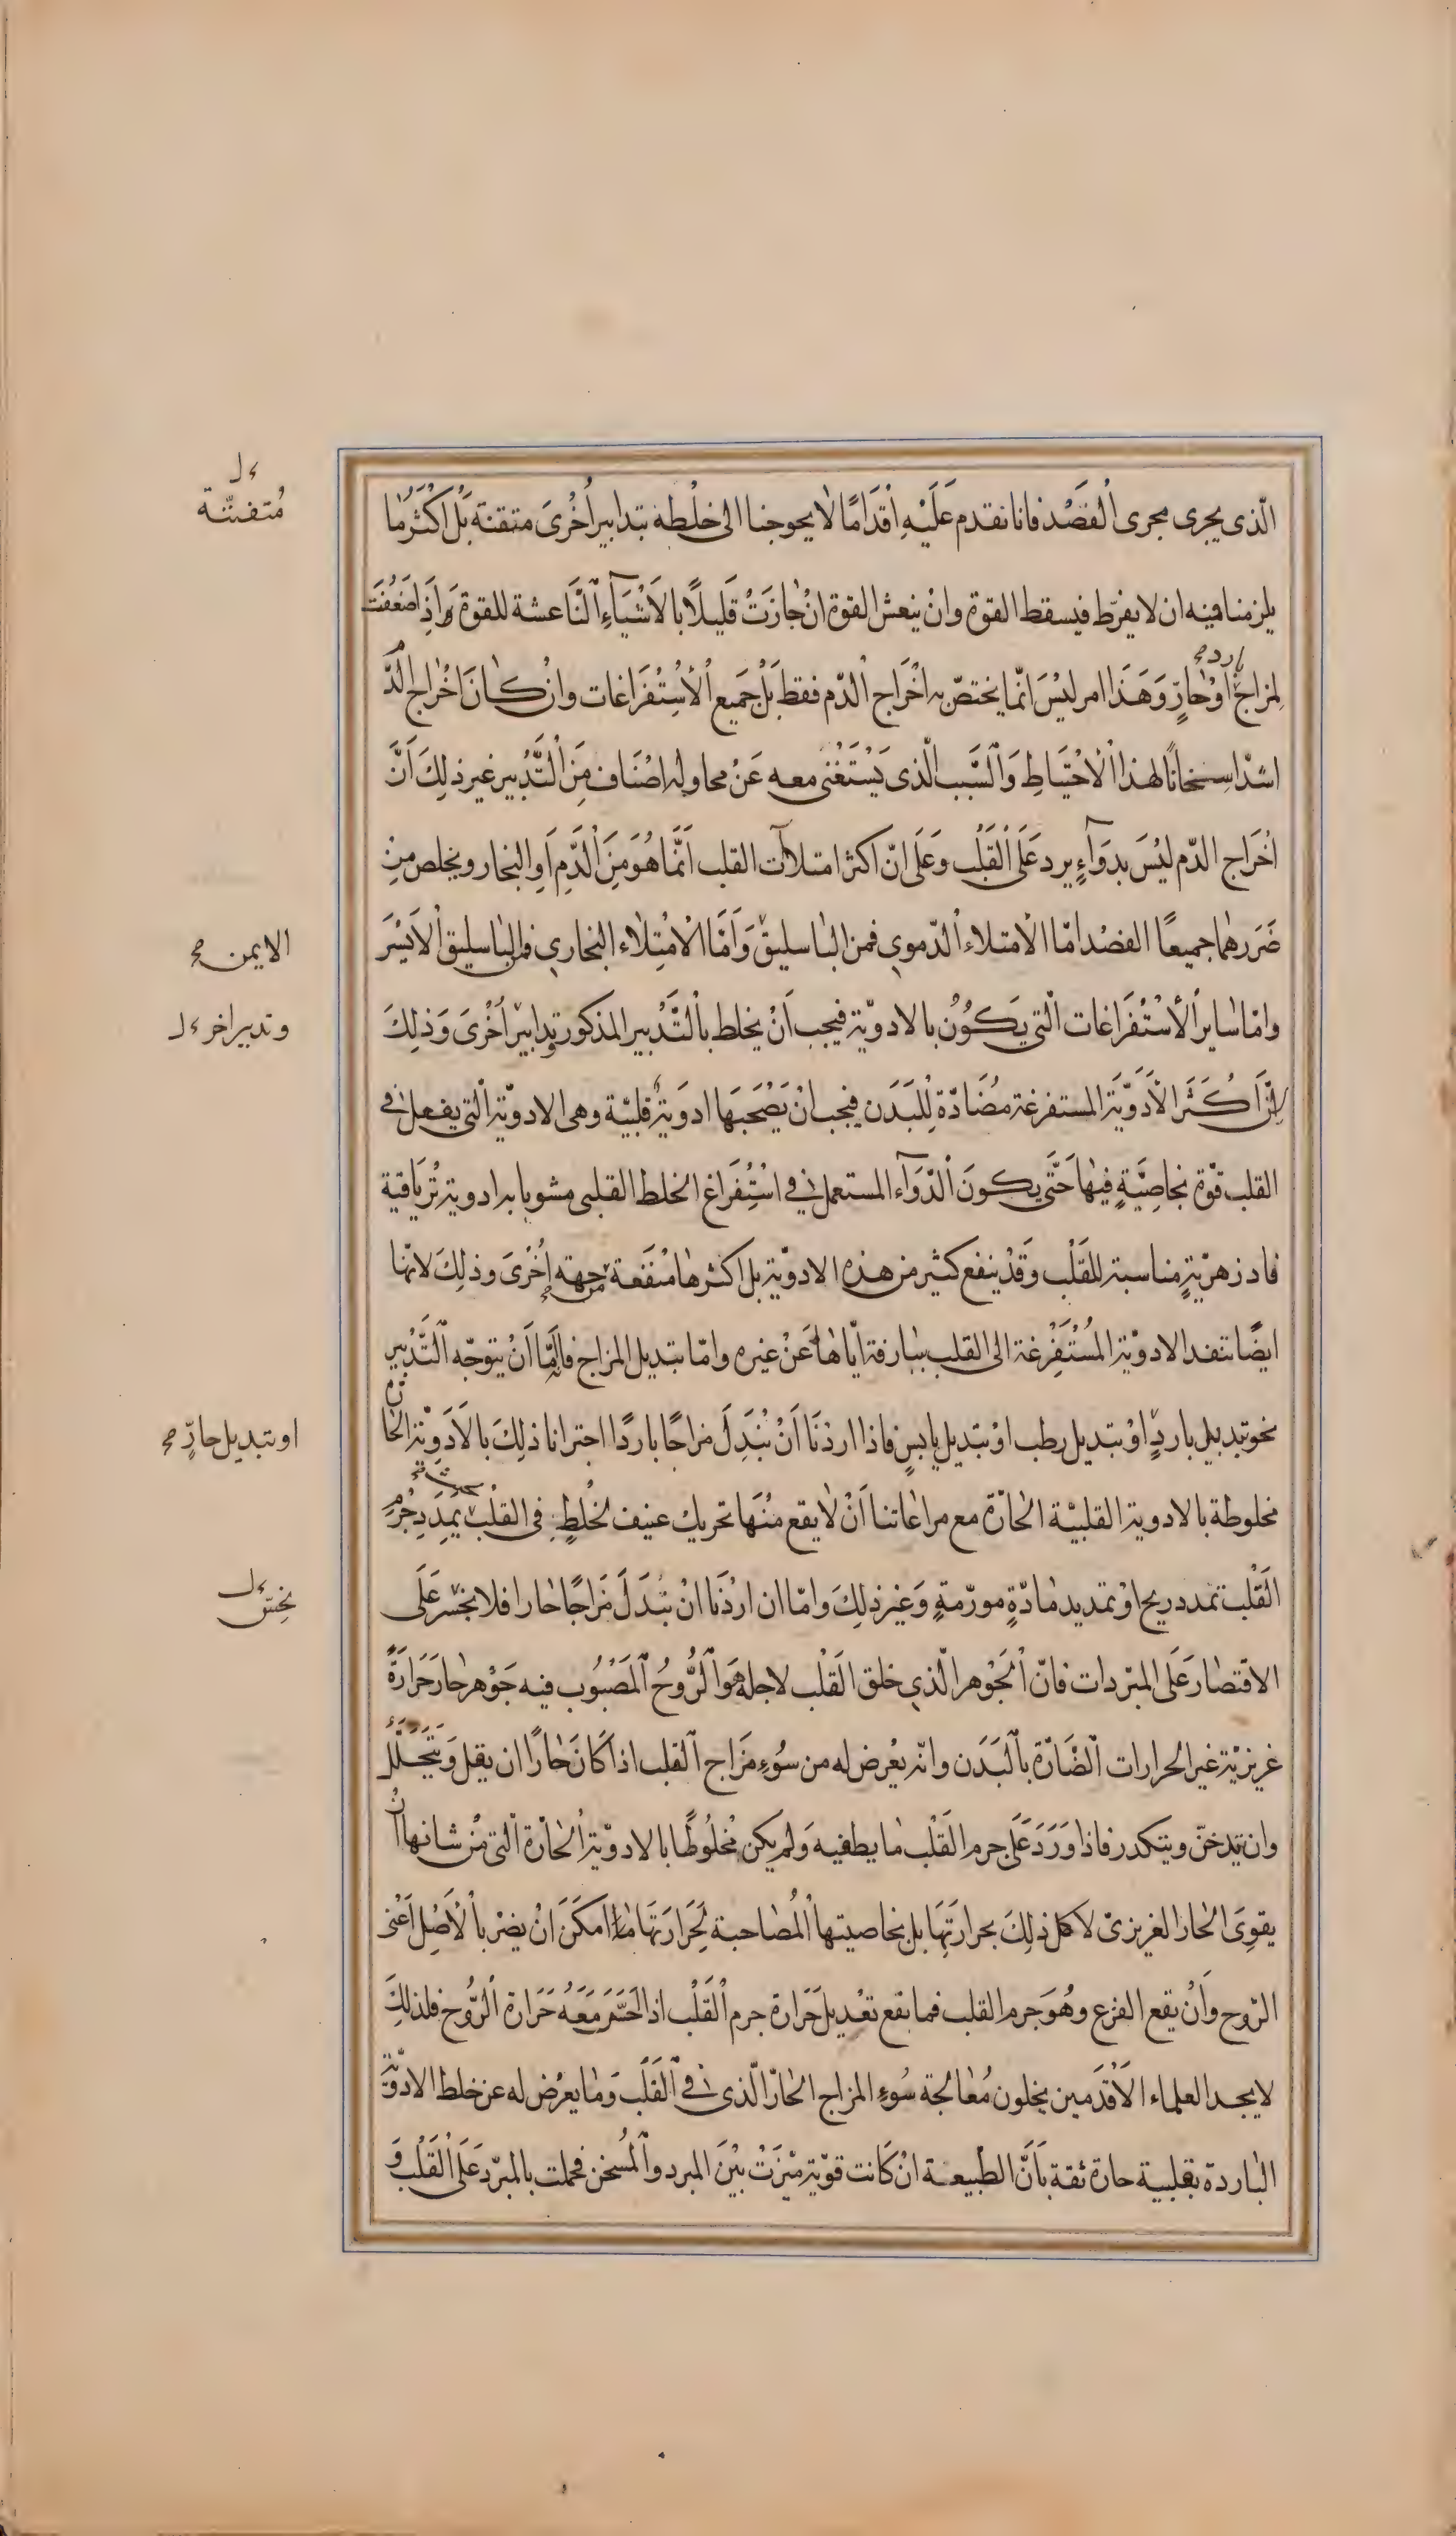 الّذى يجرى مجرى اُلفَصْد فانا نقدم عَلَيْهِ اقْدَامًا لا يحوجنا الى خلْطه بتدابير اُخْرىَ متقنة بَلْ اَكْثَرُ مَا
مُتفننّة
يلزمنا فيه ان لا يفرّط فيسقط القوة وانْ ينعش القوة انْ خازَتْ قَليلًا بالاَشْيَآءِ اْلنَّاعشة للقوة وَاذِا ضَعُفَت
لمزاج بارد اوْحَارٍّ وَهَذَا امر ليْسَ انّما يختصّ به اخْرَاج اْلدّم فقط بَلْ جَميع اُلأسْتِفْرَاغات وانْ كانَ اخْراج الدَّ
اشدّ اسِخانًا لهذا اْلاحْتيَاطِ وَاْلسَّبَب الّذى يَسْتَغْنى معه عَنْ محاوله اصْنَاف مِنَ اْلتَّدْبير غير ذلِكَ اَنَّ
اخْرَاج الدّم ليْسَ بدَوَآءٍ يرد عَلَى اْلقَلْب وَعَلَى انّ اكثر امتلاآت القلب اَنَّمَا هُوَ مِنَ اْلدَّمِ اَوِ البخار ويخلص مِنِ
ضَرَرهما جميعًا الفصْد امّا الْأمتلاء اْلدّموي فمن الباسليقْ وَاَمَّا الْأمْتِلاء البخاري فمن الباسليق اْلاَيْسَر
الايمن صح
وامّا سايرْ اْلأسْتُفْرَاغات الّتى يَكُوُنُ بالادويّة فيجب اَنْ يخلط بالْتَّدْبير المذكور تدابيرْ اُخْرىَ وَذلِكَ
وتدبير اخر
لانَّ اَكْثَرَ الْأَدَوِيَّةَ المستفرغة مضَادّة لِلْبَدَن فيجب انْ يَصْحَبَهَا ادويَة قلبيّة وهى الادويّة الّتى يفعل فى
القلب قوّة بخاصِيَّةٍ فيهٰا حَتَّى يكونَ اْلدَّوَآء المستعمل فى اسْتُفِرَاغ الخلط القلبى مشوبا به ادوية تُرْيَاقية
فادزهريّةٍ مناسبة للقَلْب وَقَدْ ينفع كثير من هذه الادويّة بل اكثرها مُنَفعَة من جهته اُخْرىَ وذلِكَ لانّها
ايضًا تنفد الادويّة المُسْتَفِرْغة الى القلب بذارفة ايّاها عَنْ غيره وامّا تبديل المزاج فاِمَّا اَنْ يتوجّه اْلتَّدْبير
نحو تبديل باردٍ اوْ بتديل رطب اوْ بتديل يابسٍ فاذا اردْنَا اَنْ نبْدَلَ مزاجًا باردًا اجترانا ذلِكَ بالْأَدَوِيّة الحٰا
او بتبديل حارٍّ صح
مخلوطة بالادوية القلبيّة الحارّة مع مراعاتنا اَنْ لا يقع منْهَا تحريك عنيف لخلْطٍ فِى القلْب يمدِّدِ جُرْمِ
الَقْلب تمدد ريح اوْ تمديد مٰادّةٍ مورّمةٍ وَغَير ذلِكَ وامّا ان اردْنَا انْ نبُدَلَ مَزاجًا حارا فلا نجْسَر عَلَى
الاقتصار عَلَى المبّردات فانّ اْلجَوْهر الّذي خلق القَلْب لاجله هَوَ اْلرُّوحُ اْلمَصْبوُب فيه جَوْهر حار حَرَارَةً
غريزيْة غير الحرارات اْلضّارّة بالْبَدَن وانّه يعْرض له من سُوُءِ مَزَاج اْلقلب اذا كانَ حٰارًا ان يقل وَيَتَحَلَّل
وان يتدخنّ ويتكدر فاذا وَرَدَ عَلَى جرم القَلْب ما يطفيه وَلم يكن مخْلوُطًا بالادويّة اْلحارّة الّتى مِنْ شانها انْ
يقوِىَ الحار الغريزىّ لا كل ذلِكَ بحرارَتِهَا بل بخاصيتها اْلمُصَاحبة لحَرَارَتهَا امكَنَ انْ يضرّ بالْاَصْلِ اَعْنى
الرّوح وَاَنْ يقع الفزع وهُوَ جرم القلب فما يقع تعْديل حَرَارة جرم اْلقَلْب اذا احْتَرَ مَعَهُ حَرَارة اْلرُّوح فلذلِكَ
لا يجد العلماء الْأَقْدَمين يخلون مُعَالجة سُوءِ المزاج الحٰارّ الّذى فى اْلقَلْب وَما يعرُض له عن خلط الادوَيَّة
الباردة بقلبية حارة ثقة باَنَّ الطّبيعة انْ كانت قويّة ميّزَتْ بيْنَ المبرد واْلمُسخن فحملت بالمبّرد عَلَى اْلقَلْب وَ